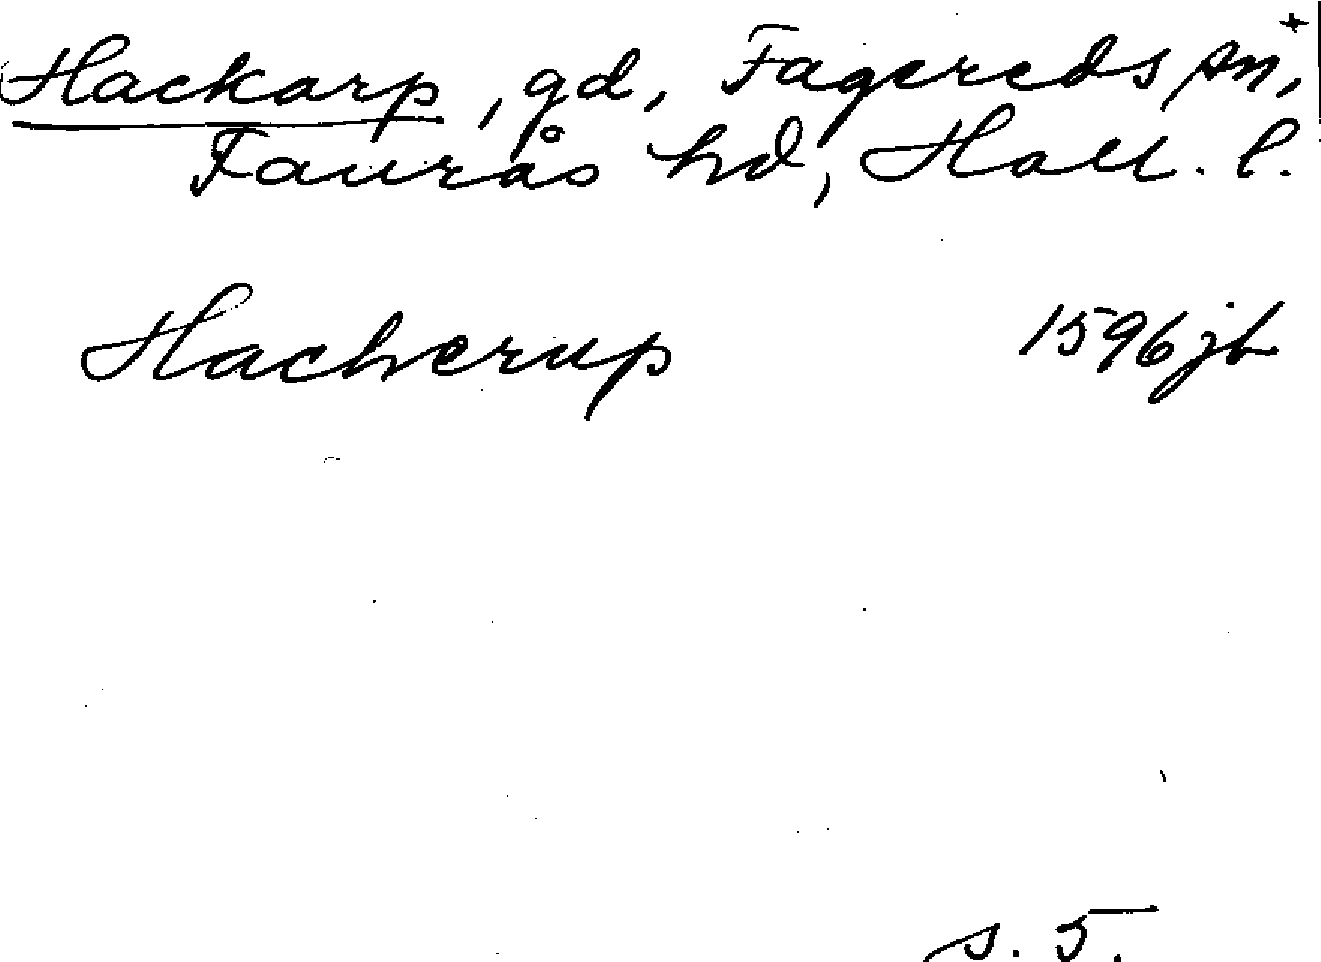 Hackarp, gd, Fagereds sn, +
Faurås hd, Hall. l.
Hacherup 1596 jb
s. 5.